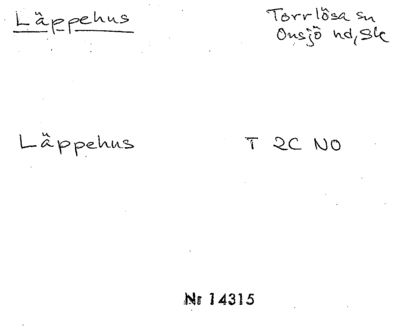 Läppehus
Torrlösa sn
Onsjö hd, Sk
Läppehus T 2C NO
Nr 14315